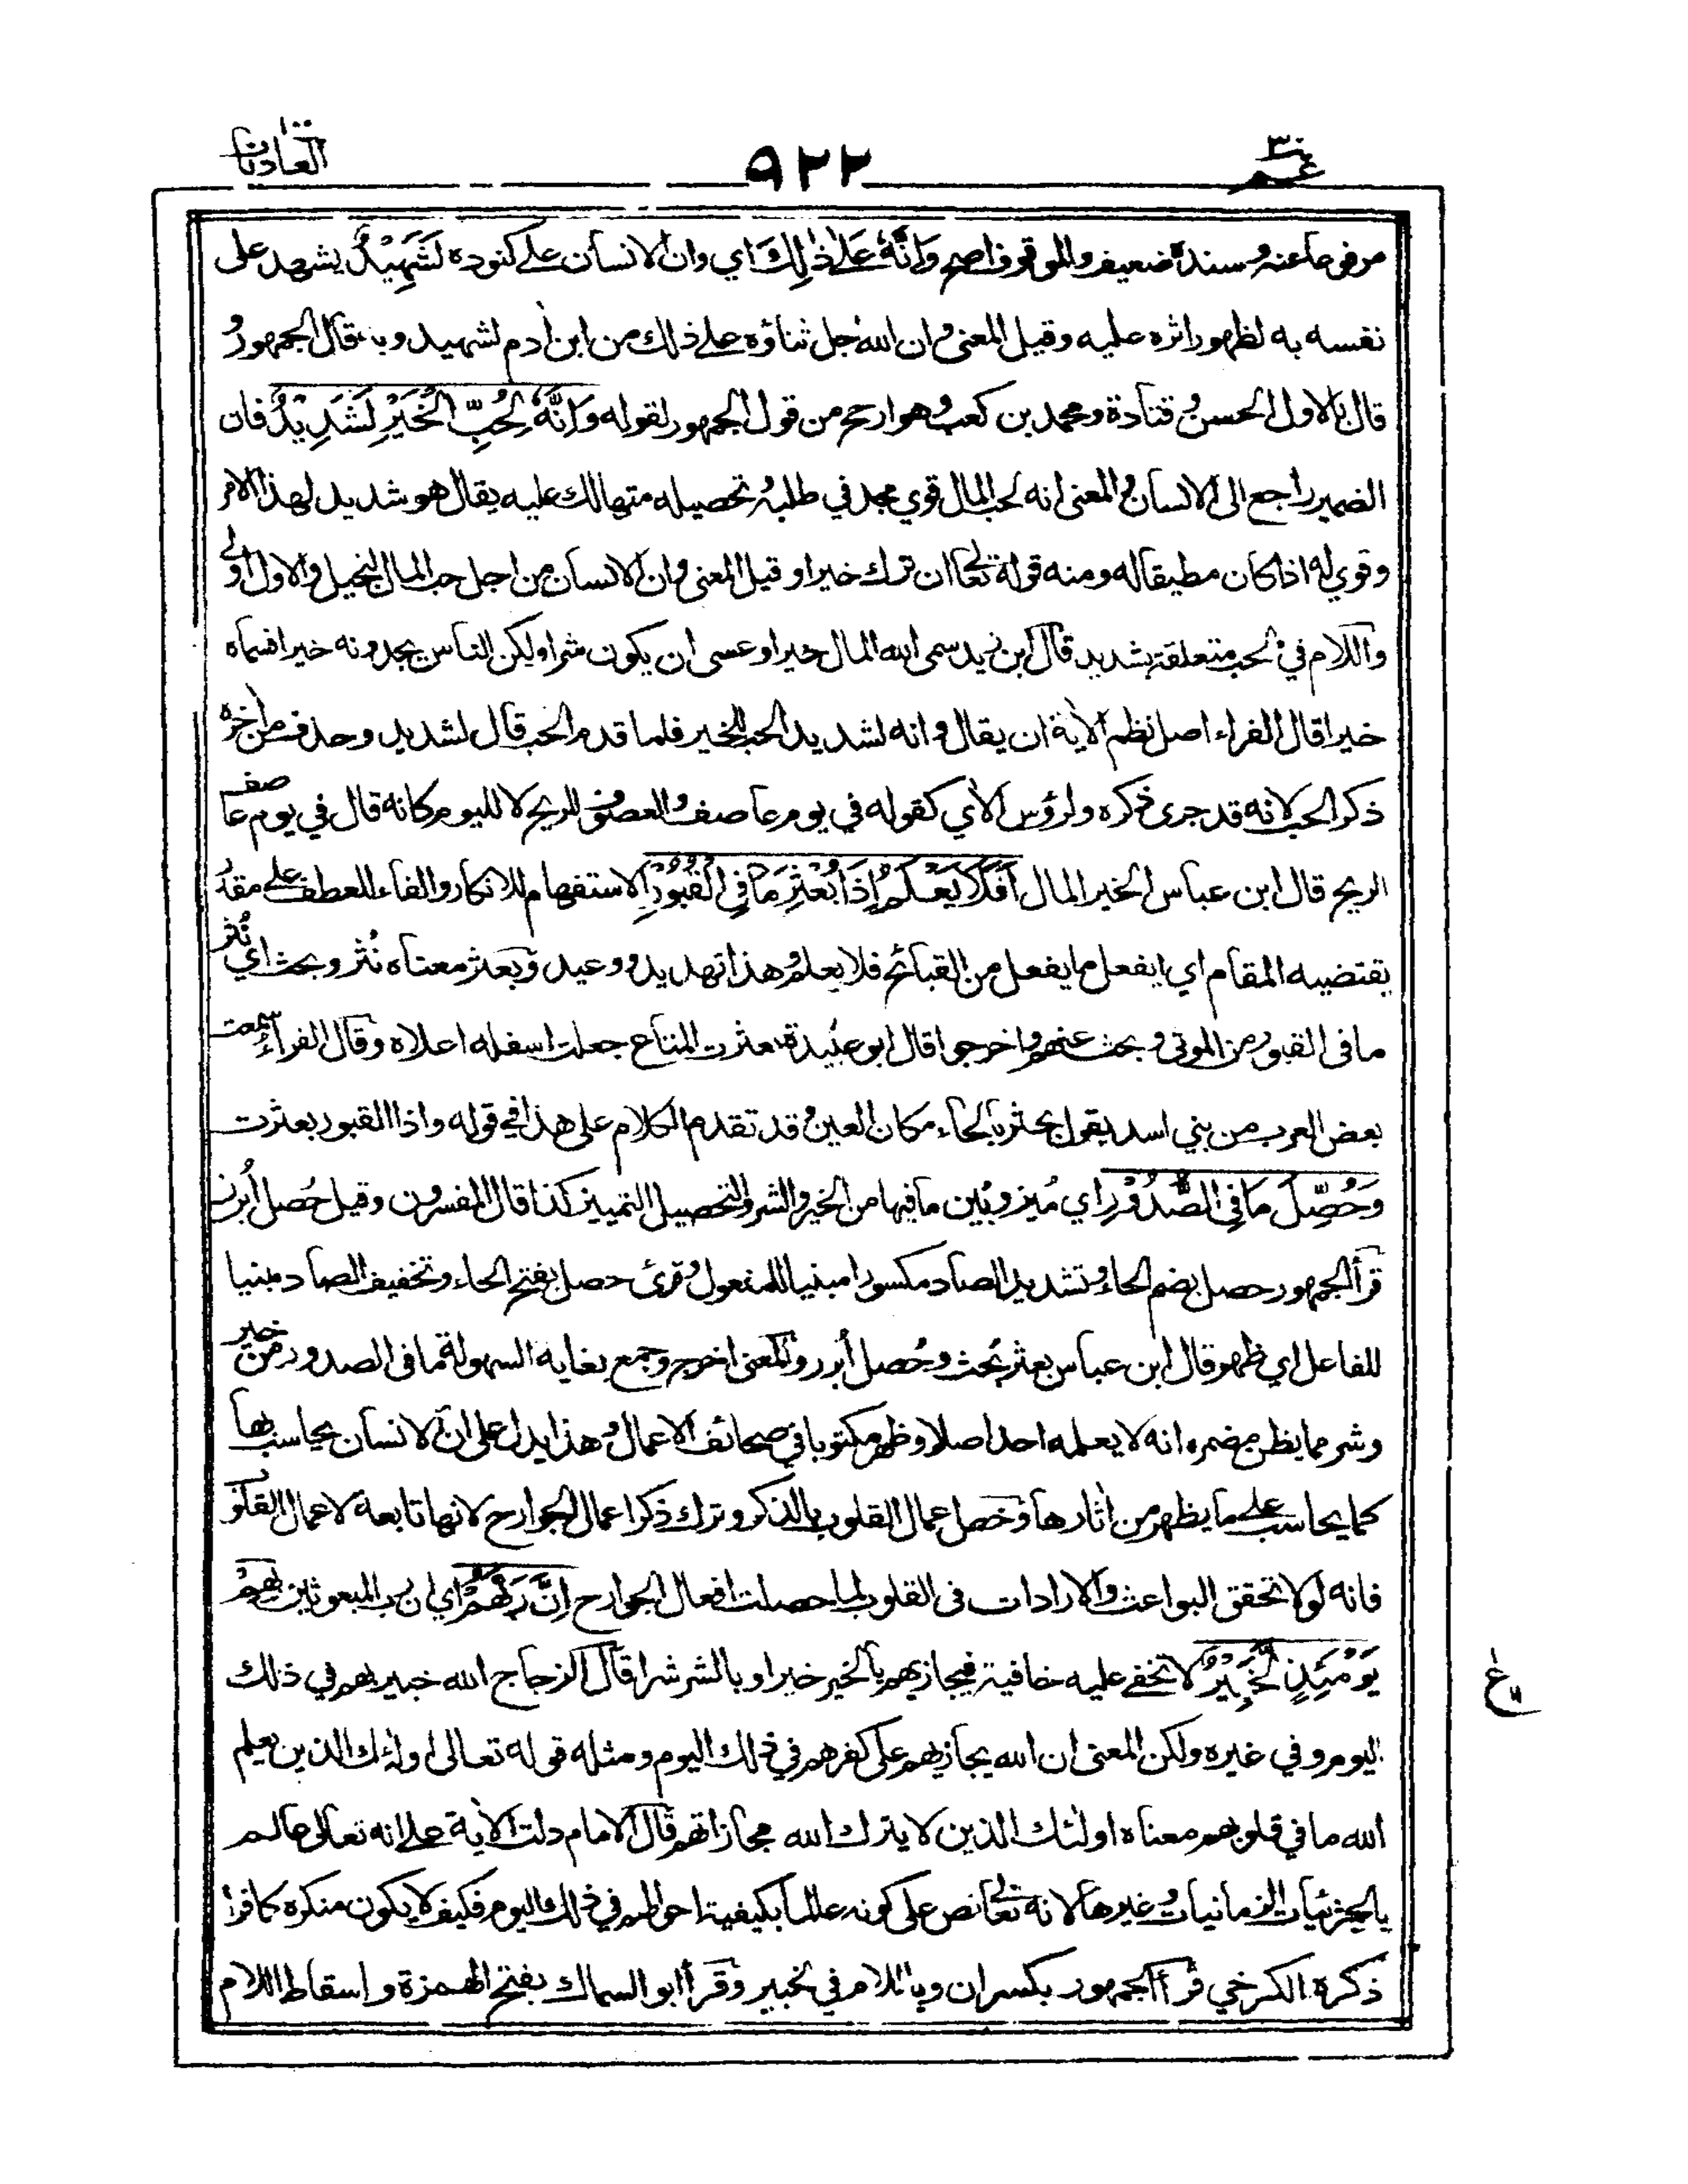 عم ٣٠
٩٢٢
العاديات ١٠٠
مرفوعا عنه وسنده ضعيف والموقوف اصح وَاِنَّهٗ عَلٰى ذٰلِكَ اي وان الانسان على كنوده لَشَهِيْدٌ يشهد على
نفسه به لظهور اثره عليه وقيل المعنى وان الله جل ثناؤه على ذلك من ابن اٰدم لشهيد وبه قال الجمهور و
قال بالاول الحسن وقتادة ومحمد بن كعب وهو ارجح من قول الجمهور لقوله وَاِنَّهٗ لِحُبِّ الْخَيْرِ لَشَدِيْدٌ فان
الضمير راجع الى الانسان والمعنى انه لحب المال قوي مجد في طلبه وتحصيله متهالك عليه يقال هو شديد لهذا الامر
وقوي له اذا كان مطيقا له ومنه قوله تعالى ان ترك خيرا وقيل المعنى وان الانسان من اجل حب المال لبخيل والاول اولى
واللام في لحب متعلقة بشديد قال ابن زيد سمى الله المال خيرا وعسى ان يكون شرا ولكن الناس يجدونه خيرا فسماه
خيرا قال الفراء اصل نظم الاٰية ان يقال وانه لشديد الحب للخير فلما قدم الحب قال لشديد وحذف من اٰخره
ذكر الحب لانه قد جرى ذكره ولرؤس الاٰي كقوله في يوم عاصف والعصوف للريح لا لليوم كانه قال في يوم عاصف
الريح قال ابن عباس الخير المال اَفَلَا يَعْلَمُ اِذَا بُعْثِرَ مَا فِى الْقُبُوْرِ الاستفهام للانكار والفاء للعطف على مقدر
يقتضيه المقام اي ايفعل ما يفعل من القبائح فلا يعلم وهذا تهديد ووعيد وبعثر معناه نُثر وبحث اي نُثر
ما فى القبور من الموتى وبحث عنهم واخرجوا قال ابو عبيدة بعثرت المتاع جعلت اسفله اعلاه وقال الفراء سمعت
بعض العرب من بني اسد يقول بحثر بالحاء مكان العين وقد تقدم الكلام على هذا في قوله واذا القبور بعثرت
وَحُصِّلَ مَا فِى الصُّدُوْرِ اي مُيز وبُين ما فيها من الخير والشر والتحصيل التمييز كذا قال المفسرون وقيل حُصل اُبرز
قرأ الجمهور حصل بضم الحاء وتشديد الصاد مكسورا مبنيا للمفعول وقرئ حصل بفتح الحاء وتخفيف الصاد مبنيا
للفاعل اي ظهر قال ابن عباس بعثر بُحث وحُصل اُبرز والمعنى اخرج وجمع بغاية السهولة ما فى الصدور من خير
وشر مما يظن مضمره انه لا يعلمه احد اصلا وظهر مكتوبا في صحائف الاعمال وهذا يدل على ان الانسان يحاسب بها
كما يحاسب على ما يظهر من اٰثارها وخص اعمال القلوب بالذكر وترك ذكر اعمال الجوارح لانها تابعة لاعمال القلوب
فانه لولا تحقق البواعث والارادات فى القلوب لما حصلت افعال الجوارح اِنَّ رَبَّهُمْ اي ان رب المبعوثين بِهِمْ
يَوْمَئِذٍ لَّخَبِيْرٌ لا تخفى عليه خافية فيجازيهم بالخير خيرا وبالشر شرا قال الزجاج الله خبير بهم في ذلك
اليوم وفي غيره ولكن المعنى ان الله يجازيهم على كفرهم في ذلك اليوم ومثله قوله تعالى اولئك الذين يعلم
الله ما في قلوبهم معناه اولئك الذين لا يترك الله مجازاتهم قال الامام دلت الاٰية على انه تعالى عالم
بالجزئيات الزمانيات وغيرها لانه تعالى نص على كونه عالما بكيفية احوالهم في ذلك اليوم فكيف لا يكون منكره كافرا
ذكره الكرخي قرأ الجمهور بكسر ان وباللام في لخبير وقرأ ابو السماك بفتح الهمزة واسقاط اللام
ع